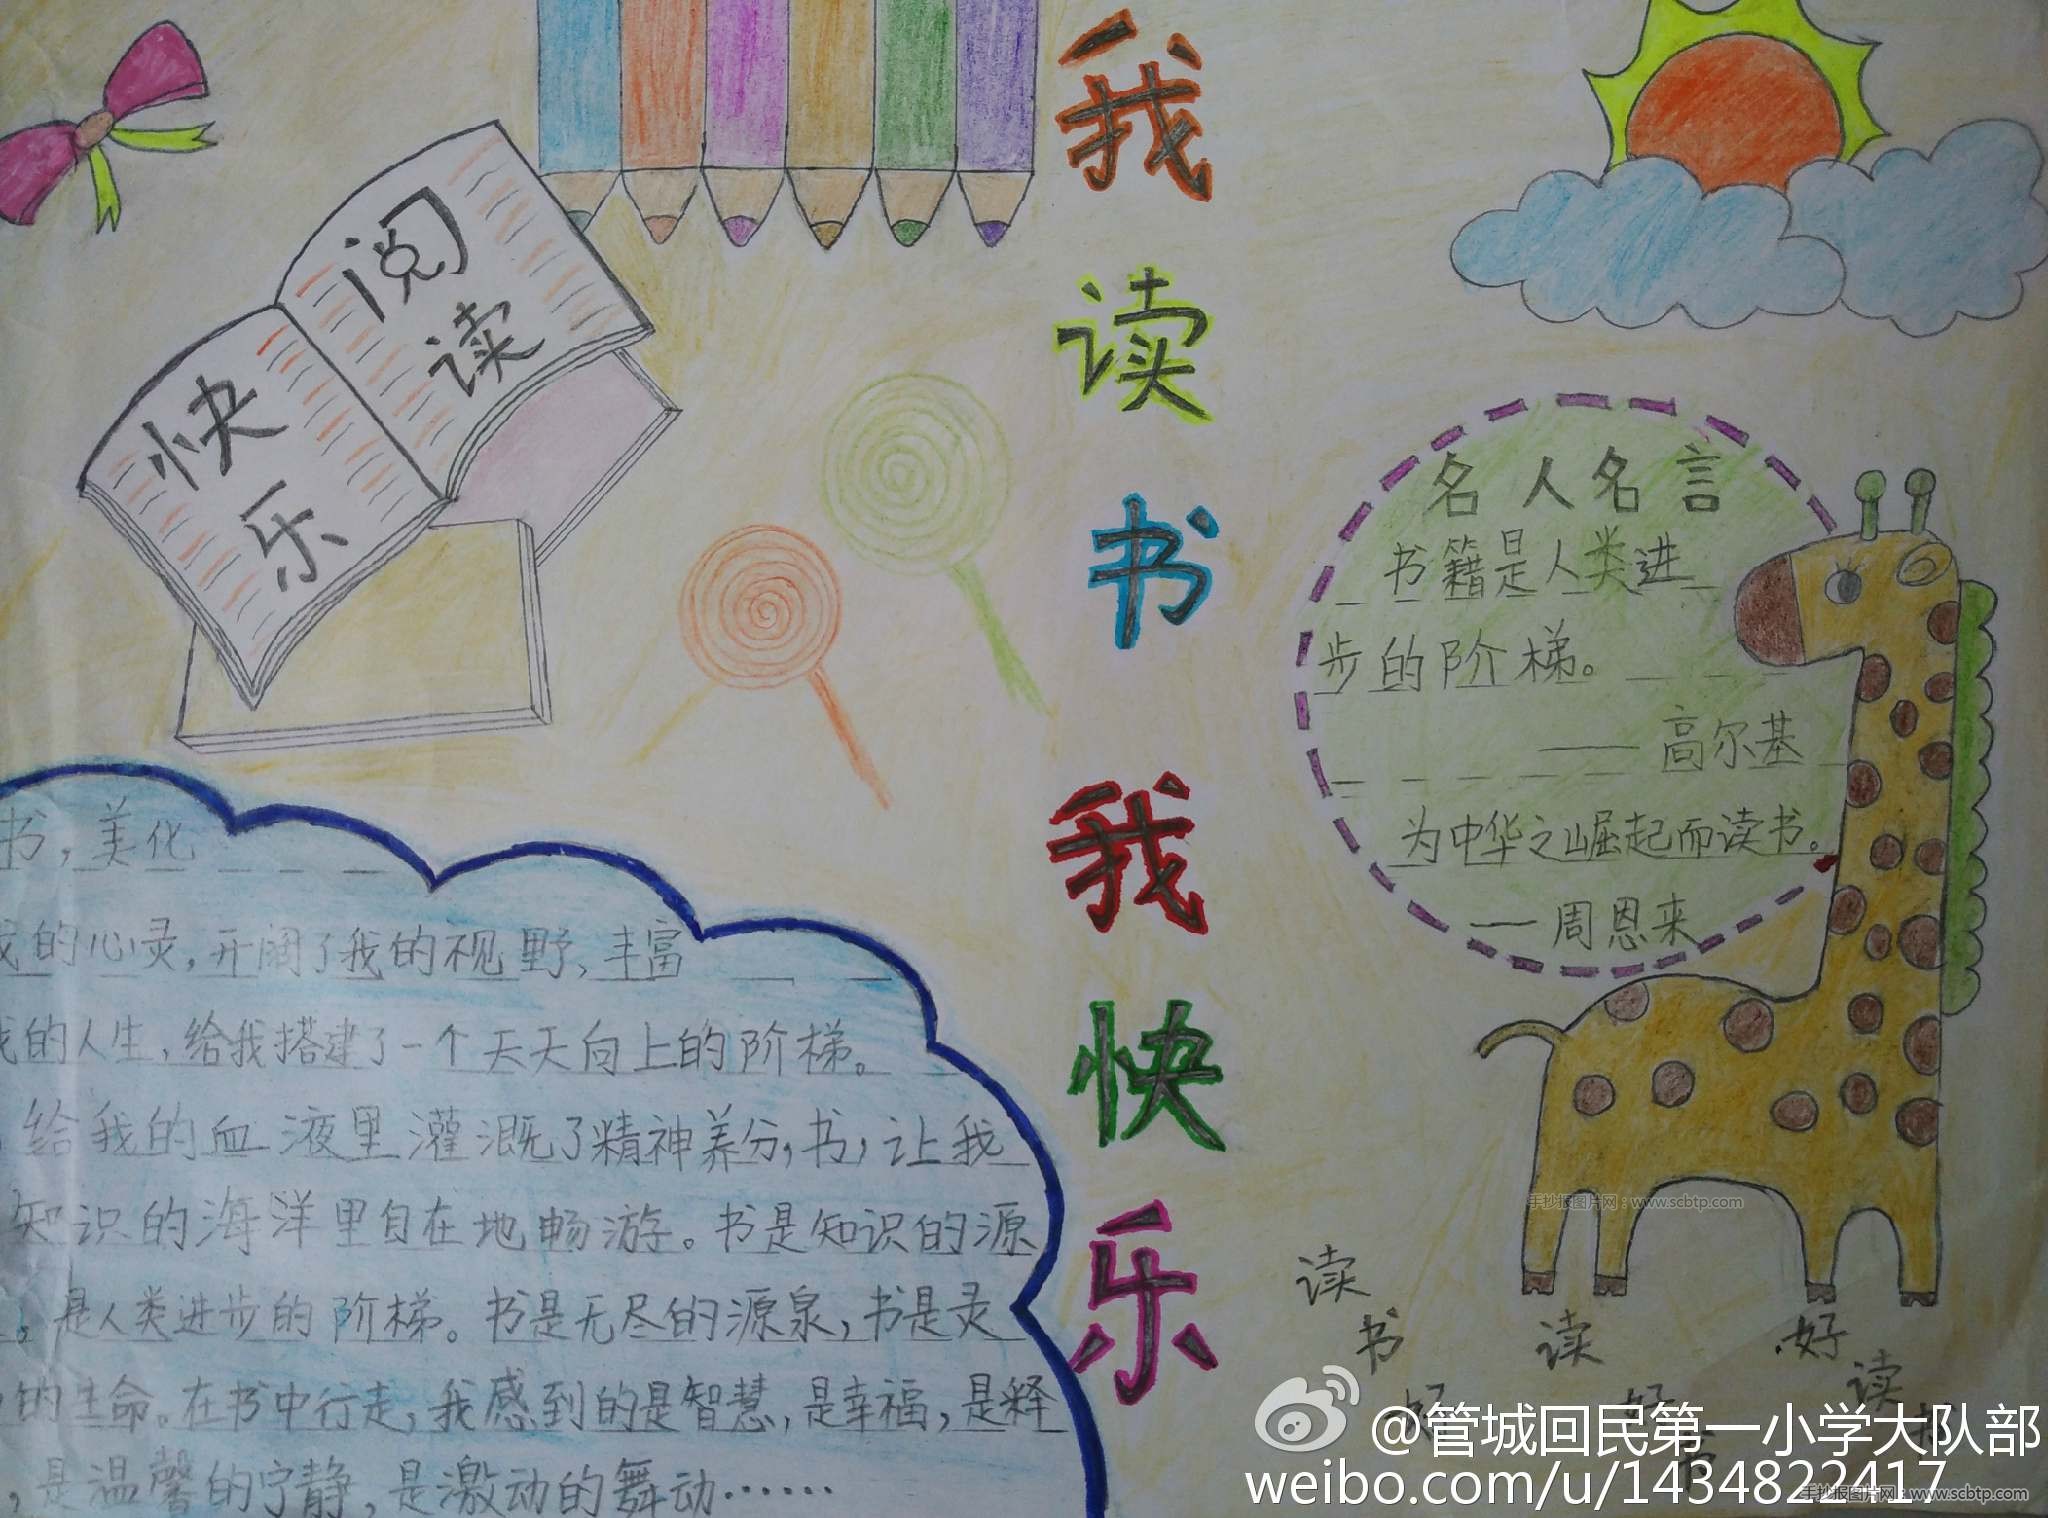 我读书我快乐
阅读
快乐
名人名言
书籍是人类进
步的阶梯。
——高尔基
为中华之崛起而读书。
——周恩来
书,美化
我的心灵,开阔了我的视野,丰富
我的人生,给我搭建了一个天天向上的阶梯。
给我的血液里灌溉了精神养分,书,让我
知识的海洋里自在地畅游。书是知识的源
,是人类进步的阶梯。书是无尽的源泉,书是灵
的生命。在书中行走,我感到的是智慧,是幸福,是释
,是温馨的宁静,是激动的舞动……
读书好
读好书
好读书
手抄报图片网:www.scbtp.com
@管城回民第一小学大队部
weibo.com/u/1434822417
手抄报图片网:www.scbtp.com